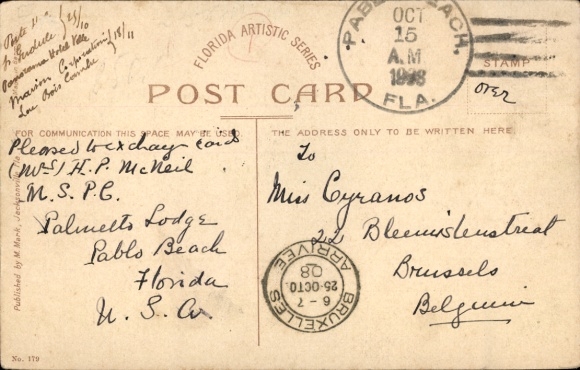 25/10
Panorama Hotel Ville
18/11
FLORIDA ARTISTIC SERIES
PABLO BEACH.
OCT
15
A.M
1908
FLA.
POST CARD
STAMP
over
FOR COMMUNICATION THIS SPACE MAY BE USED.
THE ADDRESS ONLY TO BE WRITTEN HERE.
Pleased to exchange cards
(Mrs) H. P. McNeil
M. S. P. C.
Palmetto Lodge
Pablo Beach
Florida
U. S. A.
To
Miss Cyranos
22
Brussels
Belgium
BRUXELLES
6 - 7
25-OCTO.
08
ARRIVEE
Published by M. Mark, Jacksonville, Fla.
No. 179